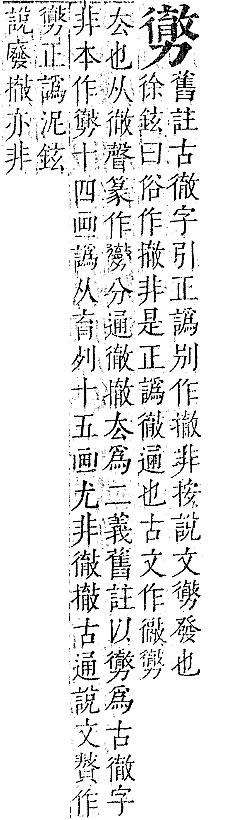 勶
舊註古徹字引正譌別作撤非按說文勶發也
徐鉉曰俗作撤非是正譌徹通也古文作勶
厺也从徹聲篆作勶分通徹撤厺爲二義舊註以勶爲古徹字
非本作勶十四画譌从育列十五画尤非徹撤古通說文贅作
勶正譌泥鉉
說廢撤亦非